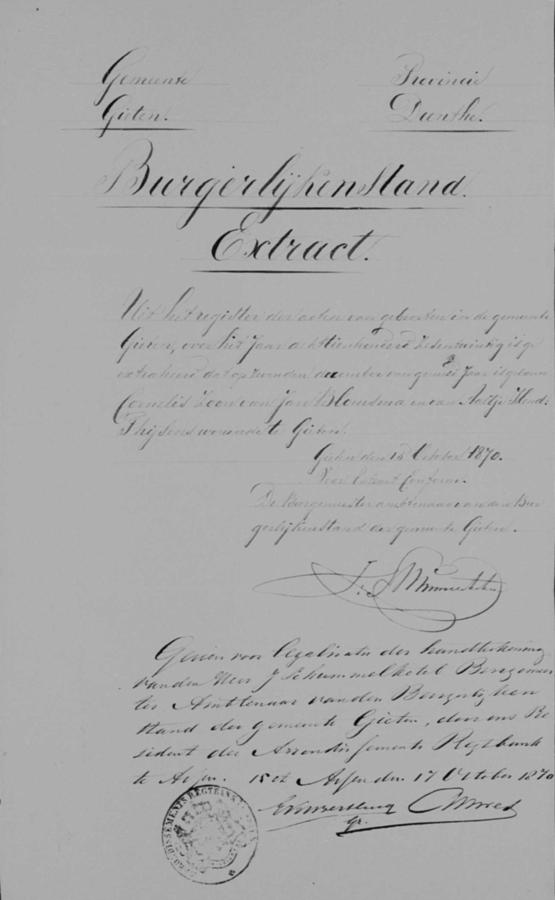 Gemeente Provincie
Gieten. Drenthe.
Burgerlijken Stand.
Extract.
Uit het register der acten van geboorten in de gemeente
Gieten, over het Jaar achttienhonderd zesentwintig is ge
extraheerd dat op den december van gemeld Jaar is geboren
Cornelis zoon van Jan en van Aaltje Hend:
Thijsens wonende te Gieten.
Gieten den 15 October 1870.
Voor Extract Conform.
De Burgemeester ambtenaar van den Bur
gerlijken stand der gemeente Gieten.
Gezien voor legalisatie der handteekening
van den Heer J Schummelketel Burgemees
ter Ambtenaar van den Burgerlijken
stand der gemeente Gieten, door ons
sident der Arrondissements Regtbank
te Assen. Assen den 17 October 1870
gr.
ARRONDISSEMENTS REGTBANK